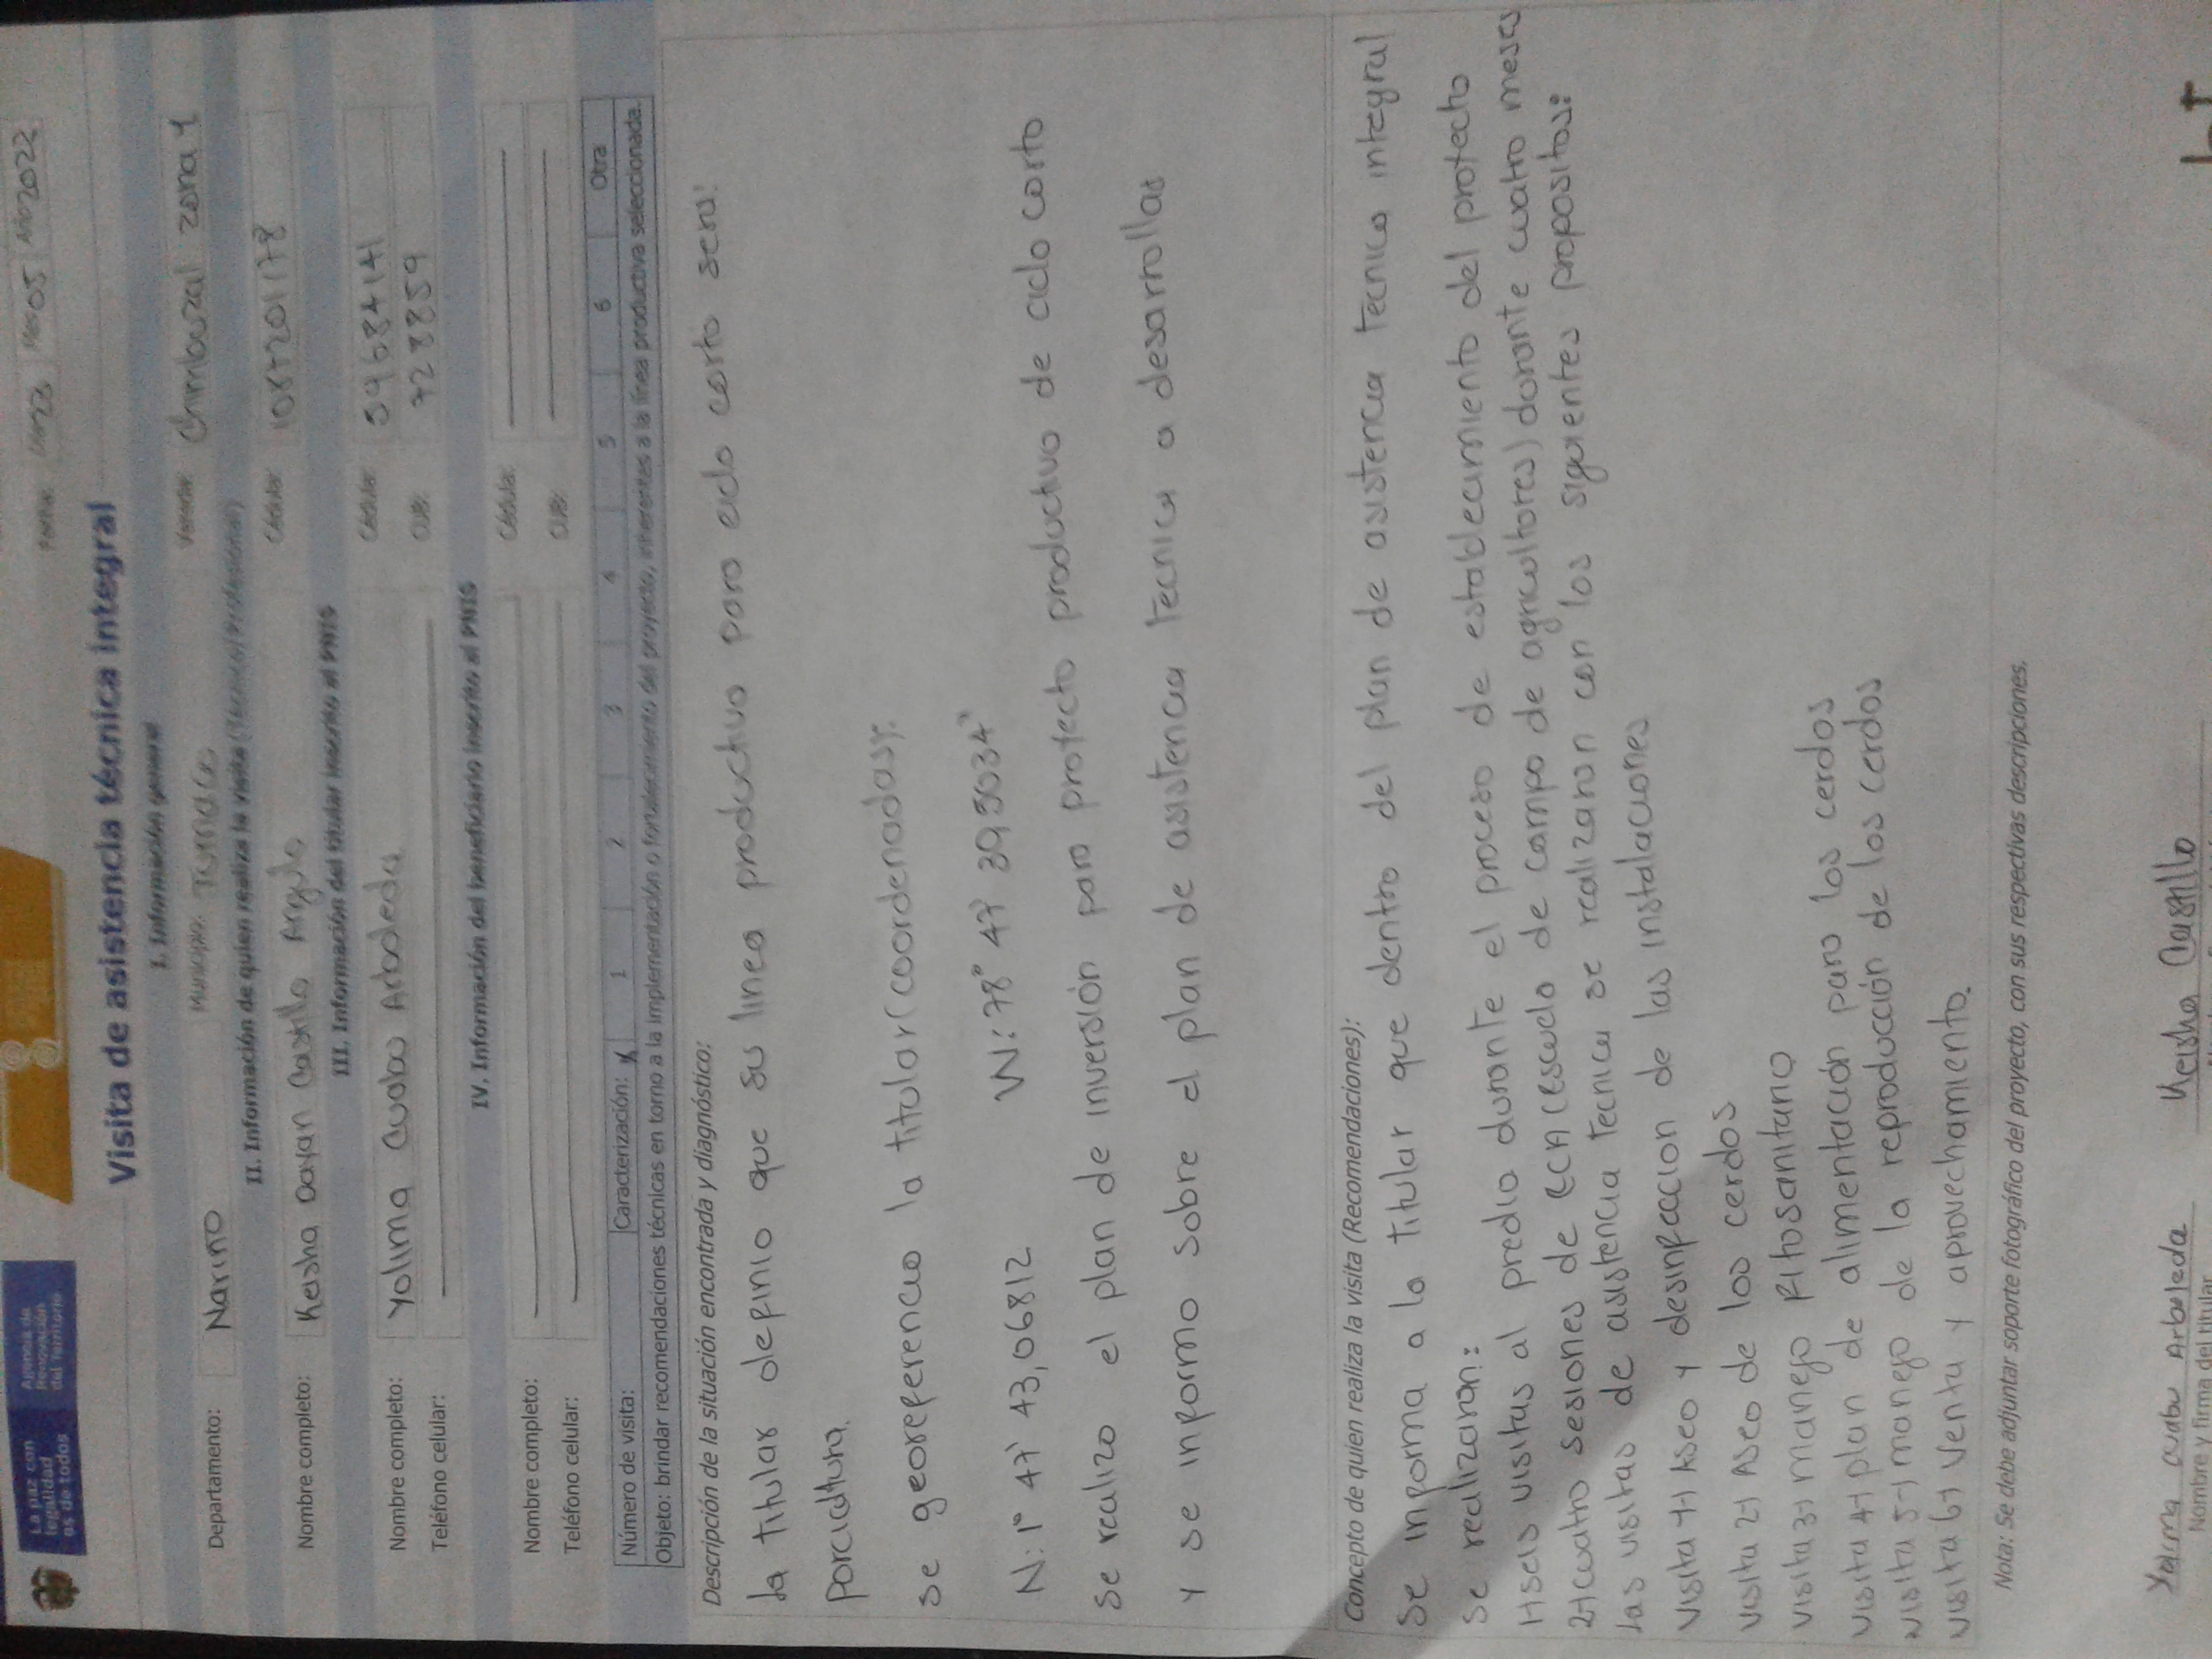 La paz con
legalidad
es de todos
Agencia de
Renovación
del Territorio
Fecha: Día 23 Mes 05 Año 2022
Visita de asistencia técnica integral
I. Información general
Departamento: Nariño Municipio: Tumaco Vereda: Chimbuzal zona 1
II. Información de quien realiza la visita (Técnico/Profesional)
Nombre completo: Keisha Dayan Castillo Angulo Cédula: 1087201178
III. Información del titular inscrito al PNIS
Nombre completo: Yolima Cuabu Arboleda Cédula: 59684141
Teléfono celular: CUB: 728859
IV. Información del beneficiario inscrito al PNIS
Nombre completo: Cédula:
Teléfono celular: CUB:
Número de visita: Caracterización: X 1 2 3 4 5 6 Otra
Objeto: brindar recomendaciones técnicas en torno a la implementación o fortalecimiento del proyecto, inherentes a la línea productiva seleccionada.
Descripción de la situación encontrada y diagnóstico:
La titular definio que su linea productiva para ciclo corto sera:
Porcicultura.
se georeferencio la titular (coordenadas):
N: 1° 47' 43,06812 W: 78° 47' 39 5034"
se realizo el plan de inversión para protecto productivo de ciclo corto
y se informo sobre el plan de asistencia tecnica a desarrollas
Concepto de quien realiza la visita (Recomendaciones):
se informa a la titular que dentro del plan de asistencia tecnica integral
se realizaran:
1-) seis visitas al predio durante el proceso de establecimiento del protecto
2-) cuatro sesiones de ECA (escuela de campo de agricultores) durante cuatro meses
las visitas de asistencia tecnica se realizaran con los siguientes propositos:
visita 1-) Aseo y desinfeccion de las instalaciones
visita 2-) Aseo de los cerdos
visita 3-) manejo fitosanitario
visita 4-) plan de alimentación para los cerdos
visita 5-) manejo de la reproducción de los cerdos
visita 6-) venta y aprovechamiento.
Nota: Se debe adjuntar soporte fotográfico del proyecto, con sus respectivas descripciones.
Yolima cuabu Arboleda Keisha Castillo
Nombre y firma del titular